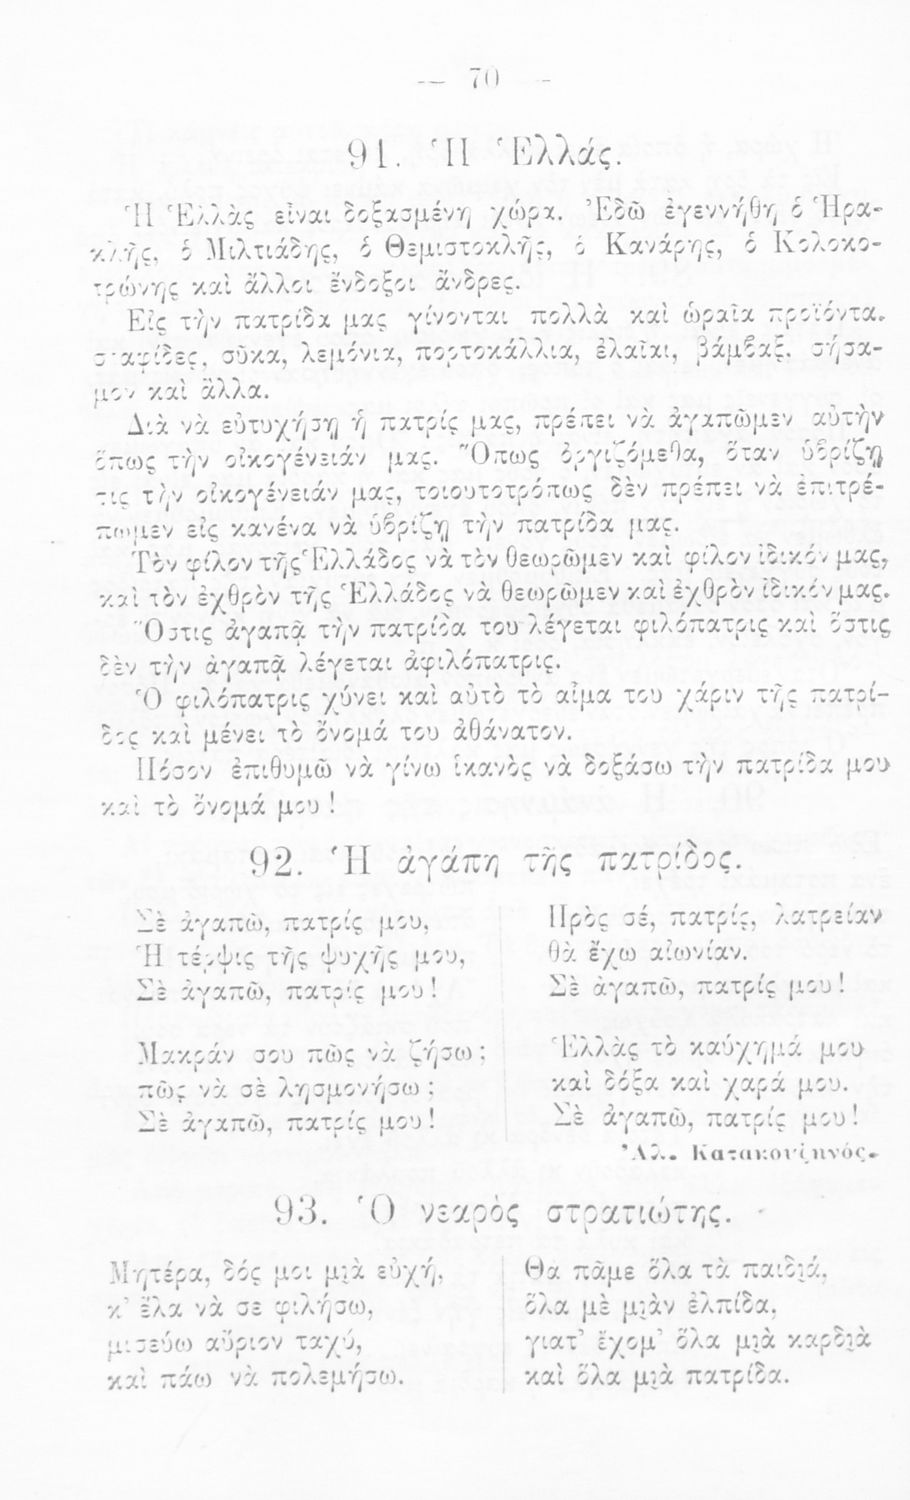 — 70 —
91. Ἡ Ἑλλάς.
Ἡ Ἑλλὰς εἶναι δοξασμένη χώρα. Ἐδῶ ἐγεννήθη ὁ Ἡρα-
κλῆς, ὁ Μιλτιάδης, ὁ Θεμιστοκλῆς, ὁ Κανάρης, ὁ Κολοκο-
τρώνης καὶ ἄλλοι ἔνδοξοι ἄνδρες.
Εἰς τὴν πατρίδα μας γίνονται πολλὰ καὶ ὡραῖα προϊόντα.
σταφίδες, σῦκα, λεμόνια, πορτοκάλλια, ἐλαῖαι, βάμβαξ, σήσα-
μον καὶ ἄλλα.
Διὰ νὰ εὐτυχήσῃ ἡ πατρίς μας, πρέπει νὰ ἀγαπῶμεν αὐτὴν
ὅπως τὴν οἰκογένειάν μας. Ὅπως ὀργιζόμεθα, ὅταν ὑβρίζῃ
τις τὴν οἰκογένειάν μας, τοιουτοτρόπως δὲν πρέπει νὰ ἐπιτρέ-
πωμεν εἰς κανένα νὰ ὑβρίζῃ τὴν πατρίδα μας.
Τὸν φίλον τῆς Ἑλλάδος νὰ τὸν θεωρῶμεν καὶ φίλον ἰδικόν μας,
καὶ τὸν ἐχθρὸν τῆς Ἑλλάδος νὰ θεωρῶμεν καὶ ἐχθρὸν ἰδικόν μας.
Ὅστις ἀγαπᾷ τὴν πατρίδα του λέγεται φιλόπατρις καὶ ὅστις
δὲν τὴν ἀγαπᾷ λέγεται ἀφιλόπατρις.
Ὁ φιλόπατρις χύνει καὶ αὐτὸ τὸ αἷμα του χάριν τῆς πατρί-
δος καὶ μένει τὸ ὄνομά του ἀθάνατον.
Πόσον ἐπιθυμῶ νὰ γίνω ἱκανὸς νὰ δοξάσω τὴν πατρίδα μου
καὶ τὸ ὄνομά μου!
92. Ἡ ἀγάπη τῆς πατρίδος.
Σὲ ἀγαπῶ, πατρίς μου,
Ἡ τέρψις τῆς ψυχῆς μου,
Σὲ ἀγαπῶ, πατρίς μου!
Μακράν σου πῶς νὰ ζήσω;
πῶς νὰ σὲ λησμονήσω;
Σὲ ἀγαπῶ, πατρίς μου!
Πρὸς σέ, πατρίς, λατρείαν
θὰ ἔχω αἰωνίαν.
Σὲ ἀγαπῶ, πατρίς μου!
Ἑλλὰς τὸ καύχημά μου
καὶ δόξα καὶ χαρά μου.
Σὲ ἀγαπῶ, πατρίς μου!
Ἀλ. Κατακουζηνός.
93. Ὁ νεαρὸς στρατιώτης.
Μητέρα, δός μοι μιὰ εὐχή,
κ' ἔλα νὰ σε φιλήσω,
μισεύω αὔριον ταχύ,
καὶ πάω νὰ πολεμήσω.
Θὰ πᾶμε ὅλα τὰ παιδιά,
ὅλα μὲ μιὰν ἐλπίδα,
γιατ' ἔχομ' ὅλα μιὰ καρδιὰ
καὶ ὅλα μιὰ πατρίδα.